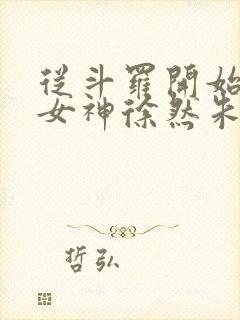 從斗羅開始
女神徐然朱
哲弘